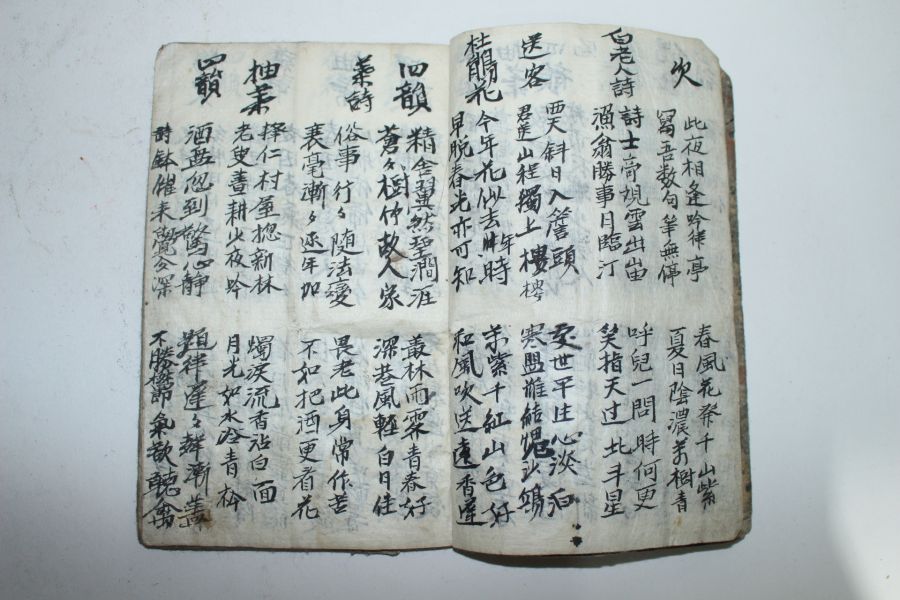 次
此夜相逢吟律亭
春風花發千山紫
寫吾数句筆無停
夏日陰濃萬樹青
白老人詩
詩士奇規雲出
呼兒一問時何更
漁翁勝事月臨汀
笑指天辺北斗星
送客
斜日入簷頭
世平生心淡泊
山程獨上樓
寒盟難結愧沙鷗
杜鵑花
今年花似去年時
萬紫千紅山色好
早脱春光亦可知
和風吹送遠香遲
四韻
精舍翼然聖澗涯
叢林雨霽青春好
蒼々樹仲故人家
深巷風軽白日佳
菜詩
俗事行々隨法變
畏老此身常作苦
衰毫漸々逐年加
不如把酒更看花
柚菜
擇仁村屋摠新林
燭淚流香沾白面
老叟晝耕此夜吟
月光如水冷青衿
四韻
酒忽到驚心静
題律遲々漸
詩鉢催来覺夜深
不勝節氣欲聽禽